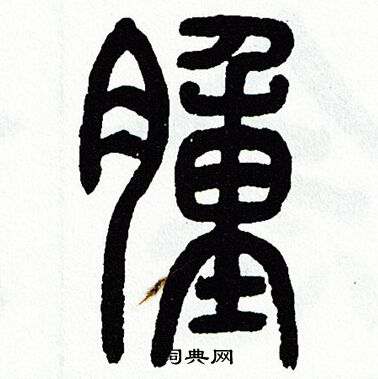 腫
词典网